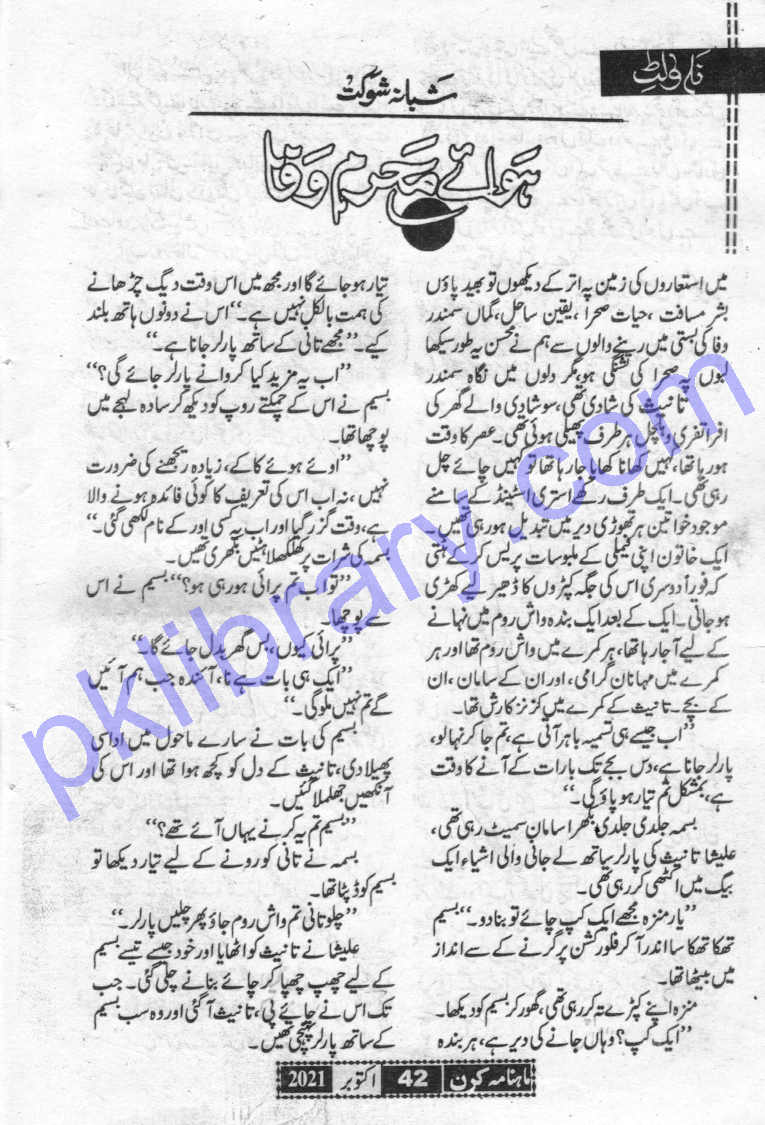 ناولٹ
شبانہ شوکت
ہوائے محرم وفا
میں استعاروں کی زمین پہ اتر کے دیکھوں تو بھید پاؤں
بشر مسافت، حیات صحرا، یقین ساحل، گماں سمندر
وفا کی بستی میں رہنے والوں سے ہم نے محسن یہ طور سیکھا
لبوں پہ صحرا کی تشنگی ہو، مگر دلوں میں نگاہ سمندر
تانیث کی شادی تھی، سو شادی والے گھر کی
افراتفری و ہلچل ہر طرف پھیلی ہوئی تھی۔ عصر کا وقت
ہو رہا تھا، کہیں کھانا کھایا جا رہا تھا تو کہیں چائے چل
رہی تھی۔ ایک طرف رکھے استری اسٹینڈ کے سامنے
موجود خواتین ہر تھوڑی دیر میں تبدیل ہو رہی تھیں۔
ایک خاتون اپنی فیملی کے ملبوسات پریس کر کے ہٹتی
کہ فوراً دوسری اس کی جگہ کپڑوں کا ڈھیر لیے کھڑی
ہو جاتی۔ ایک کے بعد ایک بندہ واش روم میں نہانے
کے لیے آ جا رہا تھا، ہر کمرے میں واش روم تھا اور ہر
کمرے میں مہمانان گرامی، اور ان کے سامان، ان
کے بچے۔ تانیث کے کمرے میں کزنز کا رش تھا۔
”اب جیسے ہی تسمیہ باہر آتی ہے، تم جا کر نہا لو،
پارلر جانا ہے، دس بجے تک بارات کے آنے کا وقت
ہے، بمشکل تم تیار ہو پاؤ گی۔“
بسمہ جلدی جلدی بکھرا سامان سمیٹ رہی تھی،
علیشا تانیث کی پارلر ساتھ لے جانی والی اشیاء ایک
بیگ میں اکٹھی کر رہی تھی۔
”یار منزہ مجھے ایک کپ چائے تو بنا دو۔“ بسیم
تھکا تھکا سا اندر آ کر فلور کشن پر گرنے کے سے انداز
میں بیٹھا تھا۔
منزہ اپنے کپڑے تہ کر رہی تھی، گھور کر بسیم کو دیکھا۔
”ایک کپ؟ وہاں جانے کی دیر ہے، ہر بندہ
تیار ہو جائے گا اور مجھ میں اس وقت دیگ چڑھانے
کی ہمت بالکل نہیں ہے۔“ اس نے دونوں ہاتھ بلند
کیے۔ ”مجھے تانی کے ساتھ پارلر جانا ہے۔“
”اب یہ مزید کیا کروانے پارلر جائے گی؟“
بسیم نے اس کے چمکتے روپ کو دیکھ کر سادہ لہجے میں
پوچھا تھا۔
”اوئے ہوئے کاکے، زیادہ ریجھنے کی ضرورت
نہیں، نہ اب اس کی تعریف کا کوئی فائدہ ہونے والا
ہے، وقت گزر گیا اور اب یہ کسی اور کے نام لکھی گئی۔“
بسمہ کی شرات پر کھلکھلاہٹیں بکھری تھیں۔
”تو اب تم پرائی ہو رہی ہو؟“ بسیم نے اس
سے پوچھا۔
”پرائی کیوں، بس گھر بدل جائے گا۔“
”ایک ہی بات ہے نا، آئندہ جب ہم آئیں
گے تم نہیں ملو گی۔“
بسیم کی بات نے سارے ماحول میں اداسی
پھیلا دی، تانیث کے دل کو کچھ ہوا تھا اور اس کی
آنکھیں جھلملا گئیں۔
”بسیم تم یہ کرنے یہاں آئے تھے؟“
بسمہ نے تانی کو رونے کے لیے تیار دیکھا تو
بسیم کو ڈپٹا تھا۔
”چلو تانی تم واش روم جاؤ پھر چلیں پارلر۔“
علیشا نے تانیث کو اٹھایا اور خود جیسے تیسے بسیم
کے لیے چھپ چھپا کر چائے بنانے چلی گئی۔ جب
تک اس نے چائے پی، تانیث آ گئی اور وہ سب بسیم
کے ساتھ پارلر پہنچی تھیں۔
ماہنامہ کرن 42 اکتوبر 2021
pklibrary.com